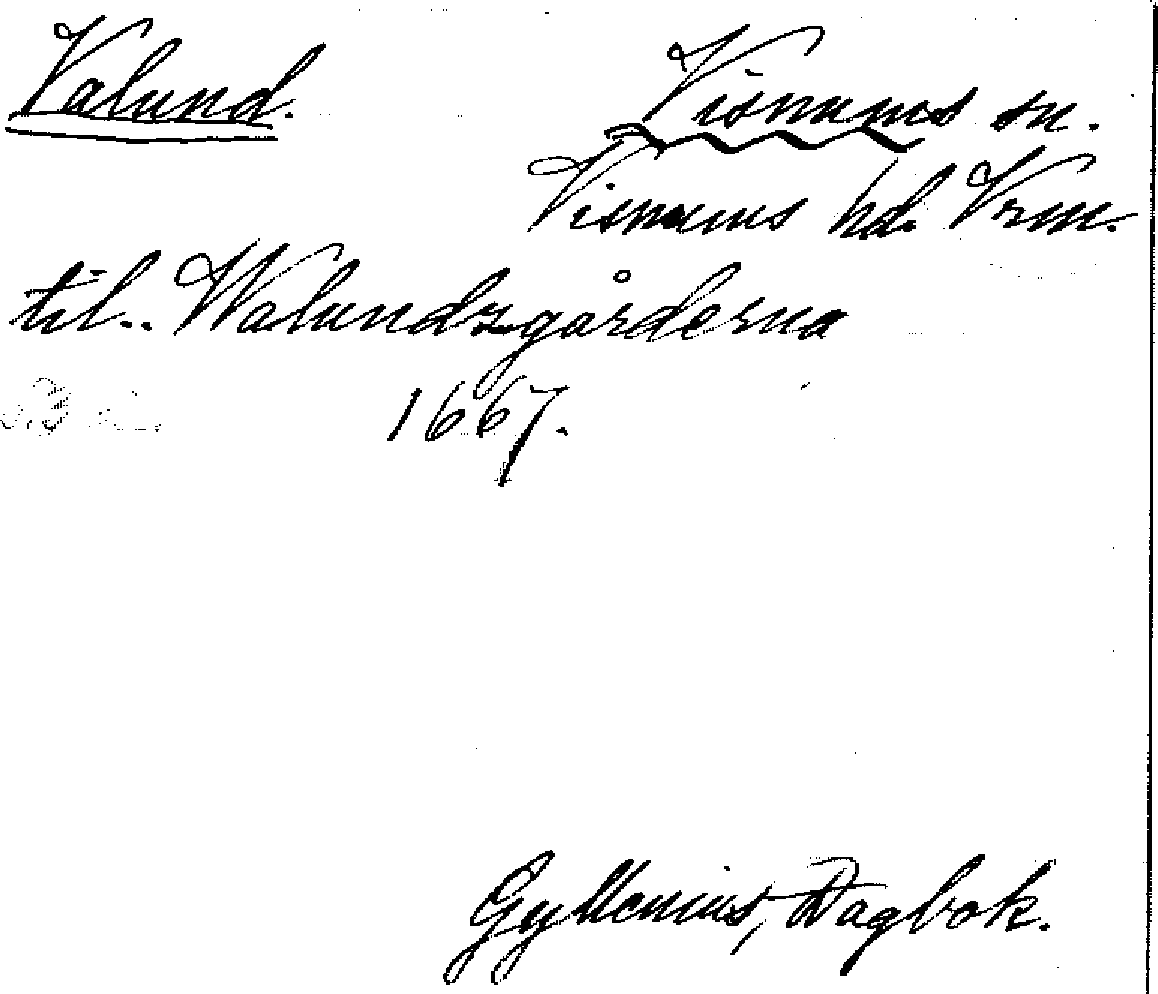 Valund. Visnums sn.
Visnums hd. Vrm.
til.. Walundzgårderna
1667.
Gyllenius, Dagbok.